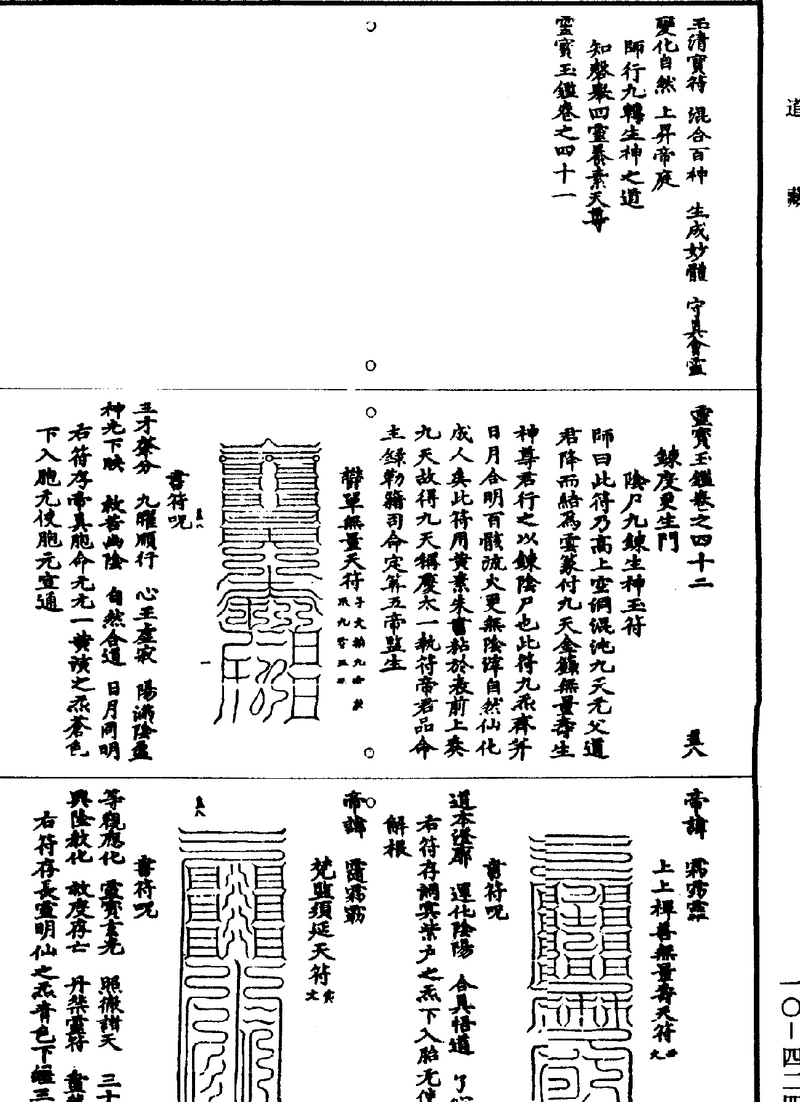 道藏
玉清寶符　混合百神　生成妙體　守真會靈
變化自然　上昇帝庭
師行九轉生神之道
知磬舉四靈暴素天尊
靈寶玉鑑卷之四十一
靈寶玉鑑卷之四十二
鍊度更生門
陰尸九鍊生神玉符
師曰此符乃高上空洞混沌九天元父道
君降而結為雲篆付九天金籙無量壽生
神尊君行之以鍊陰尸也此符九炁齊并
日月合明百骸流火更無陰滓自然仙化
成人矣此符用黃素朱書粘於表前上奏
九天故得九天稱慶太一執符帝君品命
主錄勒籍司命定筭五帝監生
鬱單無量天符
書符呪
三才肇分　九曜順行　心王虛寂　陽滿陰靈
神光下映　救苦幽陰　自然合道　日月同明
右符存帝真胞命元元一黃演之炁蒼色
下入胞元使胞元宣通
帝諱
上上禪善無量壽天符
書符呪
道本澄廓　運化陰陽　合真悟道
右符存洞冥紫戶之炁下入胎元使
解根
帝諱
梵監須延天符
書符呪
等觀應化　靈寶玄光　照徹諸天　三十
興陰教化　救度存亡　丹柴靈符
右符存長靈明仙之炁青色下
一〇－四二四